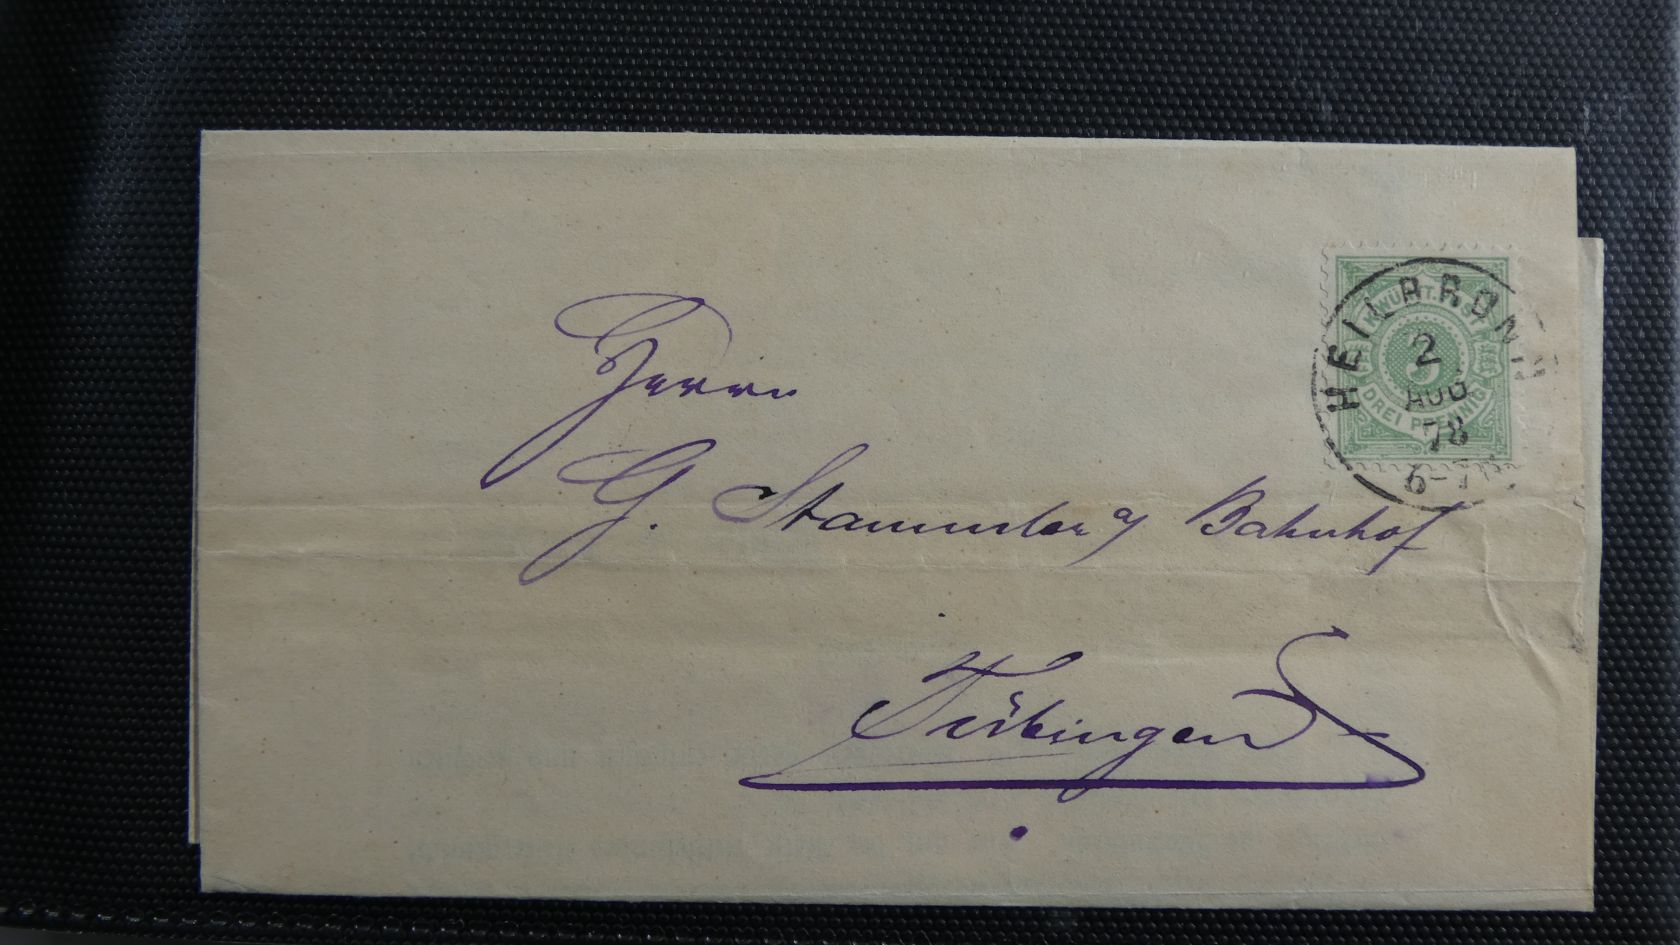 K. WÜRTT. POST
DREI PFENNIG
3
HEILBRONN
2
AUG
78
6-7
Herrn
G. Stammler a/ Bahnhof
Tübingen